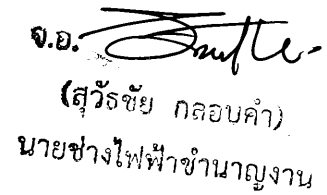 จ.อ.
(สุวัธชัย กลอบคำ)
นายช่างไฟฟ้าชำนาญงาน